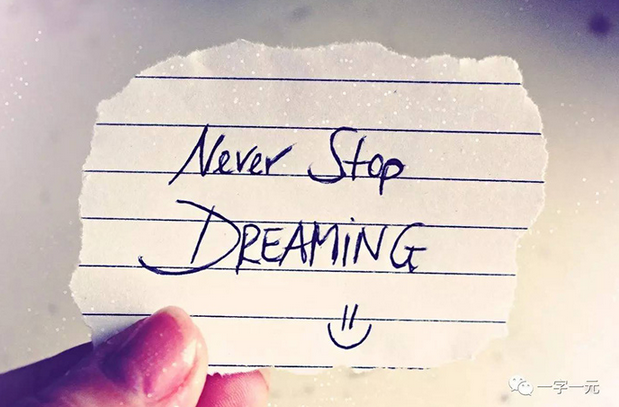 Never Stop
DREAMiNG
一字一元